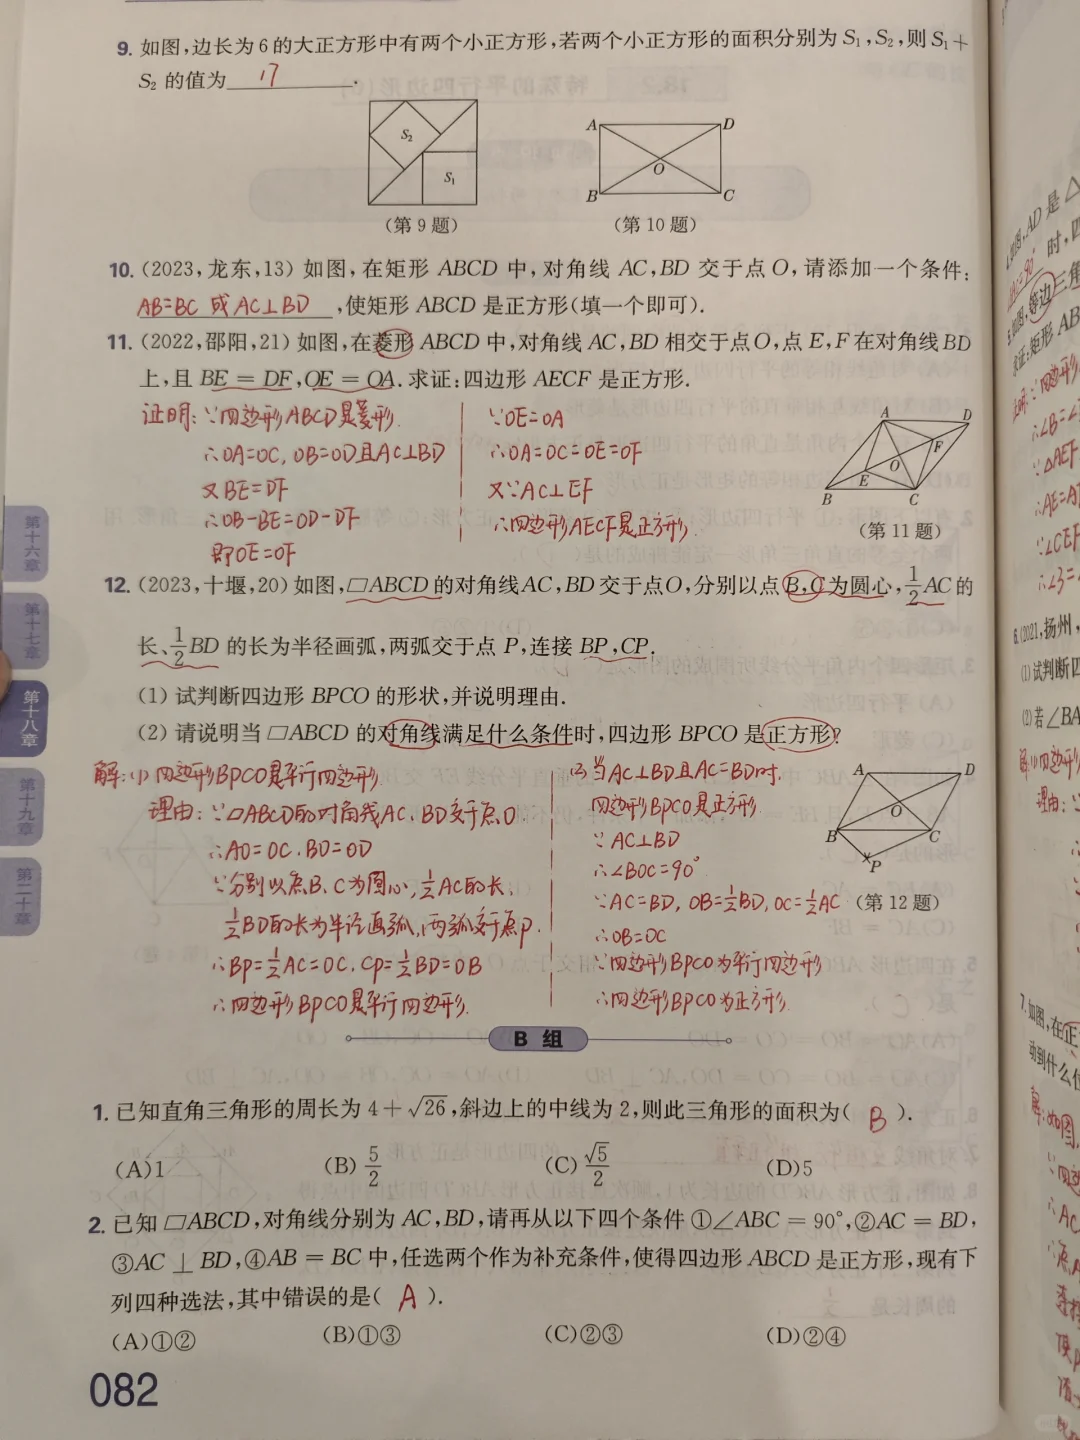 9. 如图,边长为6的大正方形中有两个小正方形,若两个小正方形的面积分别为S₁,S₂,则S₁+
S₂的值为 17 .
S₂
S₁
(第9题)
A
D
O
B
C
(第10题)
10. (2023,龙东,13)如图,在矩形ABCD中,对角线AC,BD交于点O,请添加一个条件:
AB=BC 或 AC⊥BD ,使矩形ABCD是正方形(填一个即可).
11. (2022,邵阳,21)如图,在菱形ABCD中,对角线AC,BD相交于点O,点E,F在对角线BD
上,且BE=DF,OE=OA.求证:四边形AECF是正方形.
证明:∵四边形ABCD是菱形
∴OA=OC,OB=OD且AC⊥BD
又BE=DF
∴OB-BE=OD-DF
即OE=OF
∵OE=OA
∴OA=OC=OE=OF
又∵AC⊥EF
∴四边形AECF是正方形.
A
D
F
O
E
B
C
(第11题)
12. (2023,十堰,20)如图,▱ABCD的对角线AC,BD交于点O,分别以点B,C为圆心,1/2AC的
长、1/2BD的长为半径画弧,两弧交于点P,连接BP,CP.
(1)试判断四边形BPCO的形状,并说明理由.
(2)请说明当▱ABCD的对角线满足什么条件时,四边形BPCO是正方形?
解:(1)四边形BPCO是平行四边形.
理由:∵▱ABCD的对角线AC、BD交于点O
∴AO=OC.BO=OD
∵分别以点B、C为圆心,1/2AC的长,
1/2BD的长为半径画弧,两弧交于点P.
∴BP=1/2AC=OC,CP=1/2BD=OB
∴四边形BPCO是平行四边形.
(2)当AC⊥BD且AC=BD时.
四边形BPCO是正方形
∵AC⊥BD
∴∠BOC=90°
∵AC=BD,OB=1/2BD,OC=1/2AC
∴OB=OC
∵四边形BPCO为平行四边形
∴四边形BPCO为正方形.
A
D
O
B
C
P
(第12题)
B 组
1. 已知直角三角形的周长为4+√26,斜边上的中线为2,则此三角形的面积为( B ).
(A)1 (B)5/2 (C)√5/2 (D)5
2. 已知▱ABCD,对角线分别为AC,BD,请再从以下四个条件①∠ABC=90°,②AC=BD,
③AC⊥BD,④AB=BC中,任选两个作为补充条件,使得四边形ABCD是正方形,现有下
列四种选法,其中错误的是( A ).
(A)①② (B)①③ (C)②③ (D)②④
082
第十六章
第十七章
第十八章
第十九章
第二十章